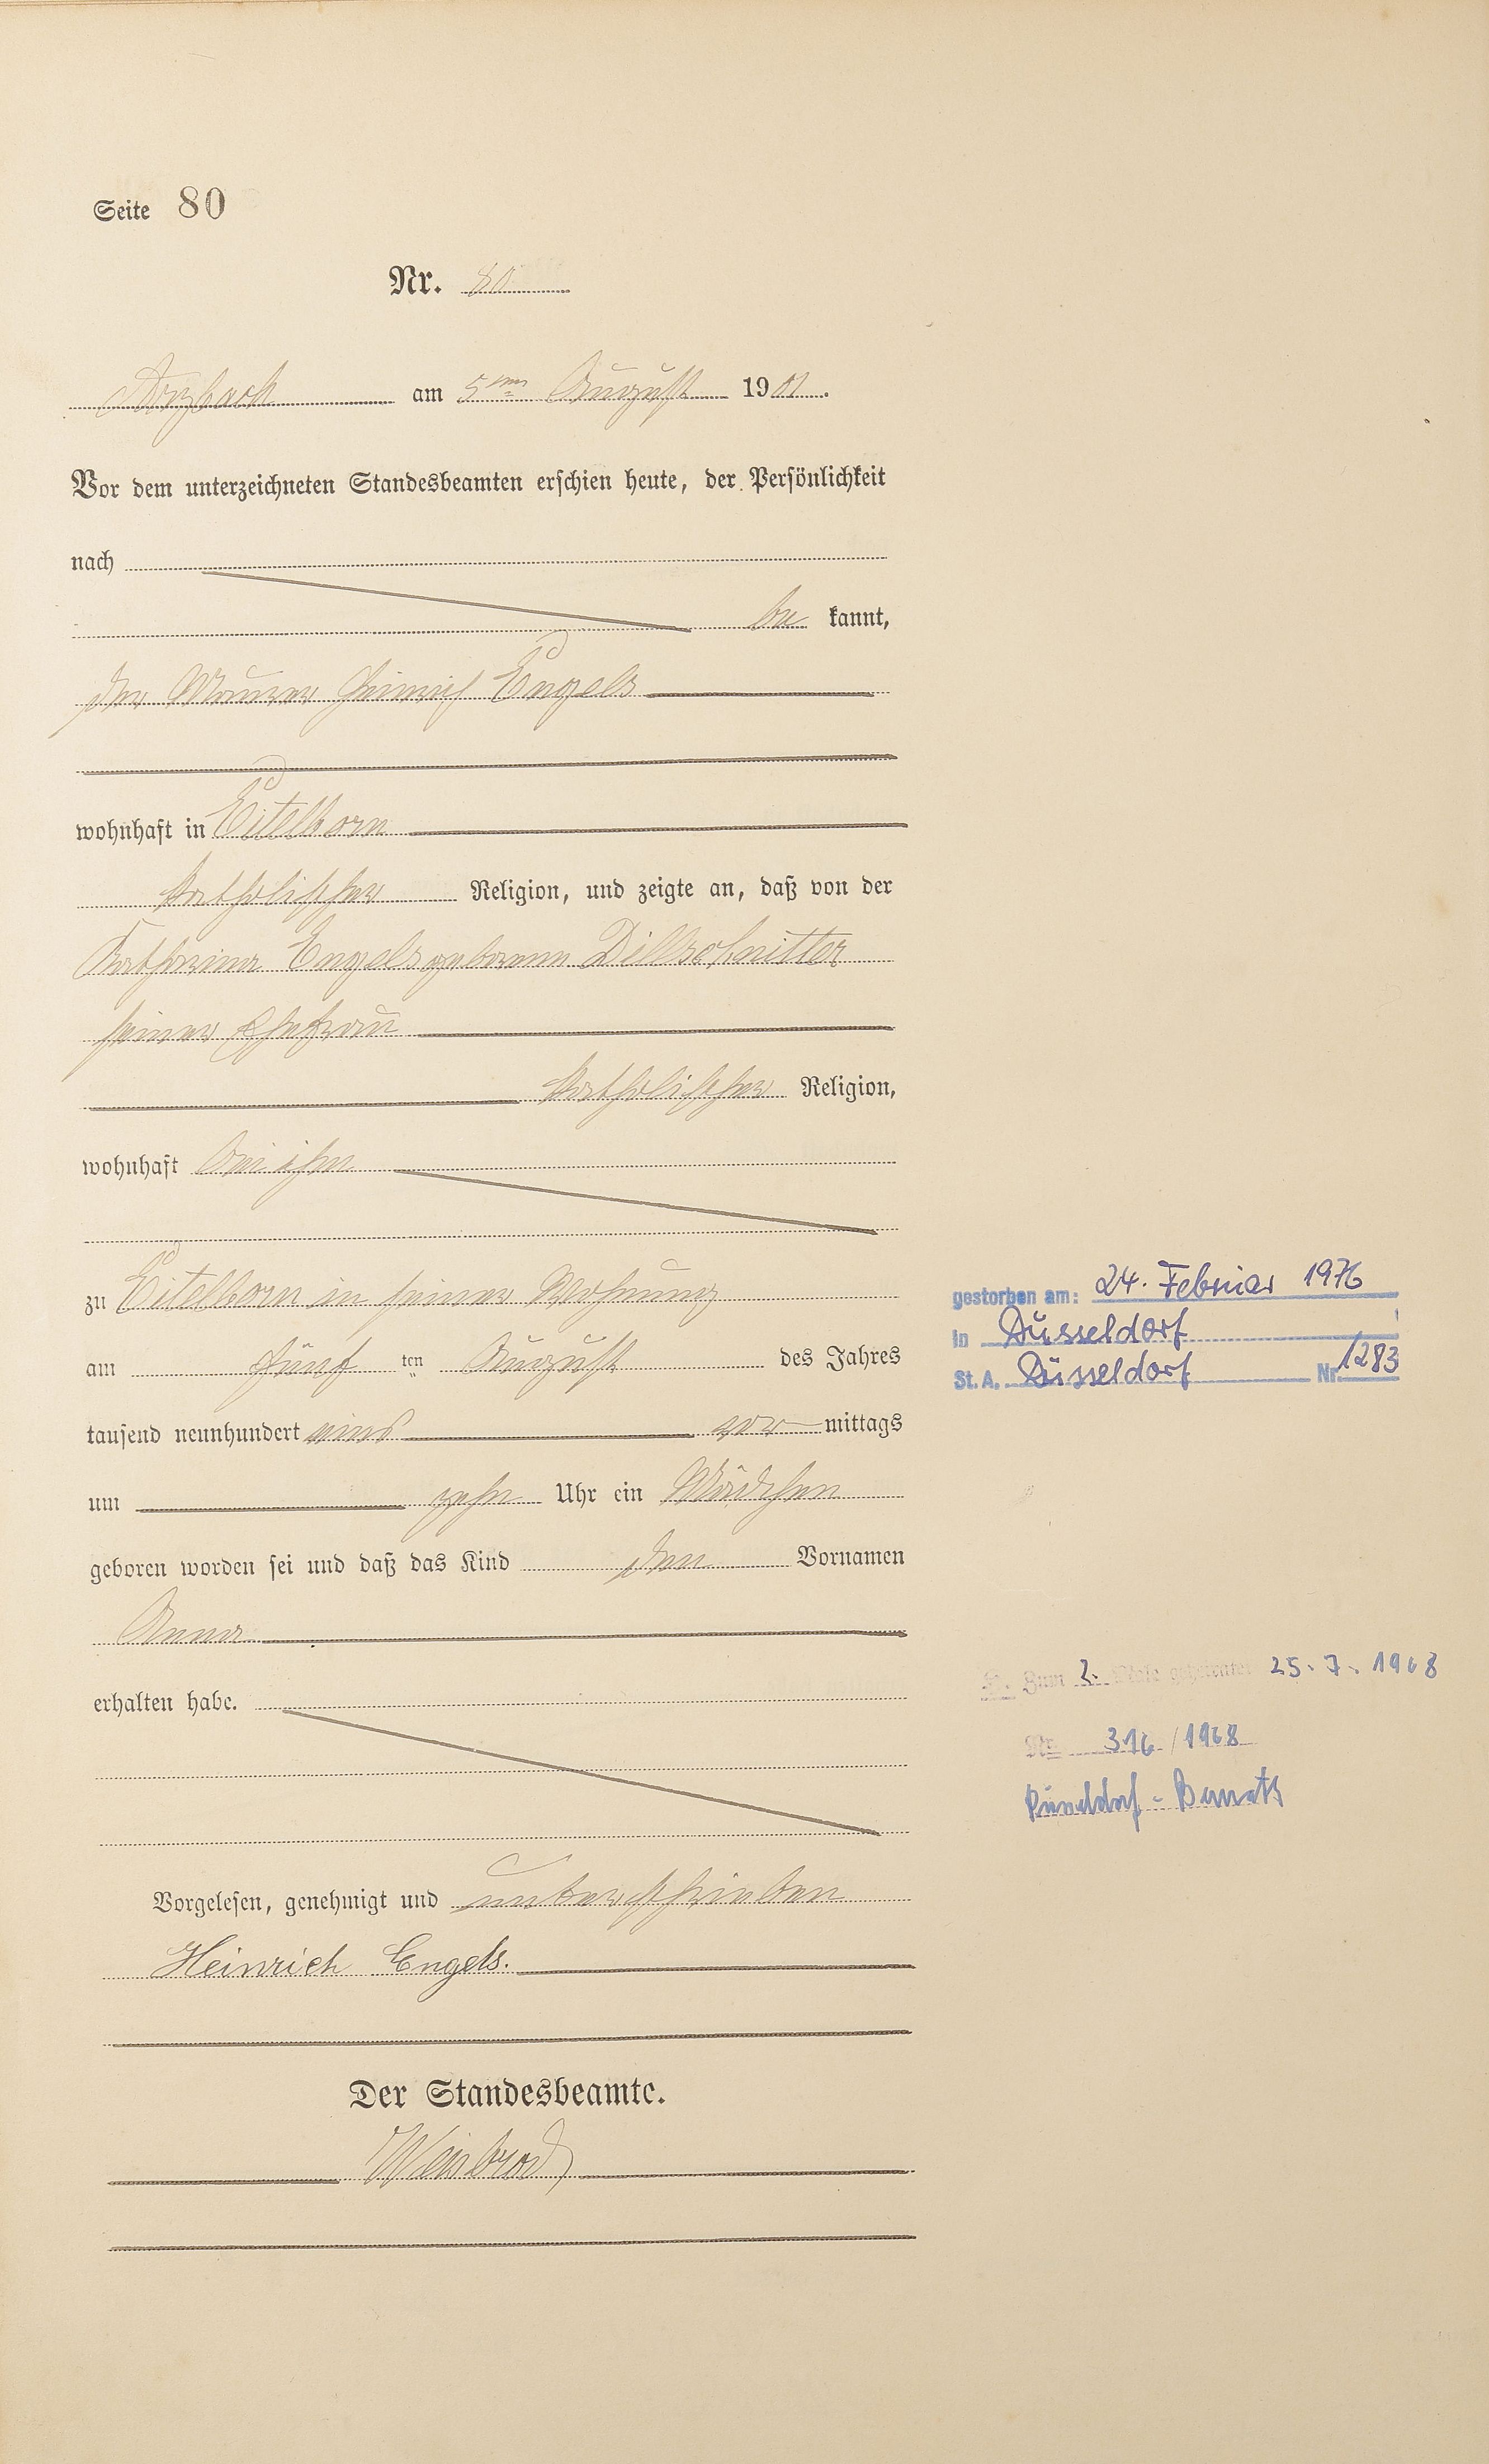 Seite 80
Nr. 80
Arzbach am 5ten August 1901.
Vor dem unterzeichneten Standesbeamten erschien heute, der Persönlichkeit
nach
be kannt,
der Maurer Heinrich Engels
wohnhaft in Eitelborn
katholischer Religion, und zeigte an, daß von der
Katharina Engels geborene Dillschnitter
seiner Ehefrau
katholischer Religion,
wohnhaft bei ihm
zu Eitelborn in seiner Wohnung
am fünf ten August des Jahres
tausend neunhundert eins vor mittags
um zehn Uhr ein Mädchen
geboren worden sei und daß das Kind den Vornamen
Anna
erhalten habe.
Vorgelesen, genehmigt und unterschrieben
Heinrich Engels.
Der Standesbeamte.
Weisbrod
gestorben am: 24. Februar 1976
in Düsseldorf
St. A. Düsseldorf Nr. 1283
Zum 2. Male geheiratet 25.7.1968
Nr. 316/1968
Düsseldorf - Benrath